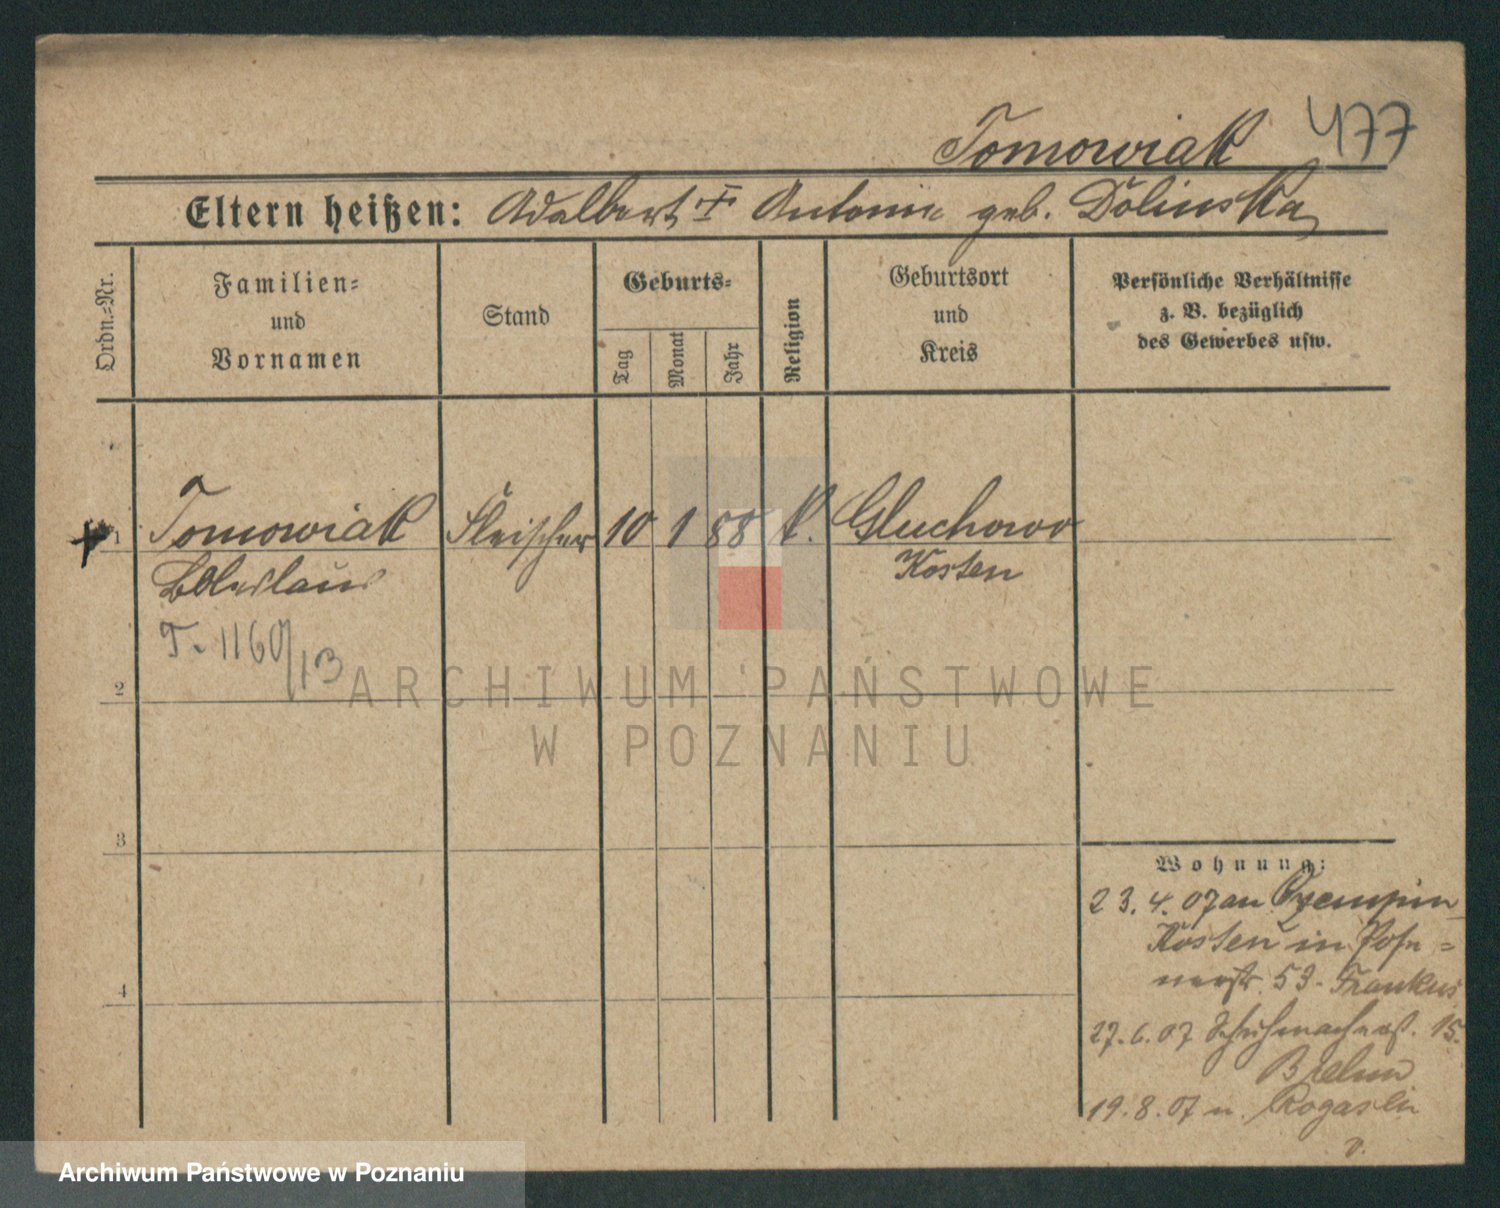 Tomowiak 477
Eltern heißen: Adalbert † Antonie geb. Dolinska
Ordn.=Nr.
Familien=
und
Vornamen
Stand
Geburts=
Tag
Monat
Jahr
Religion
Geburtsort
und
Kreis
Persönliche Verhältnisse
z. B. bezüglich
des Gewerbes usw.
1 Tomowiak Fleischer 10 1 88 k. Gluchowo
Boleslaus Kosten
T. 1160/13
2
3
4
Wohnung:
23. 4. 07 an Czempin
Kosten in Pose=
nerstr. 53. Frankus
27. 6. 07 Schuhmacherst. 15.
19. 8. 07 n. Rogasen
v.
ARCHIWUM PAŃSTWOWE
W POZNANIU
Archiwum Państwowe w Poznaniu